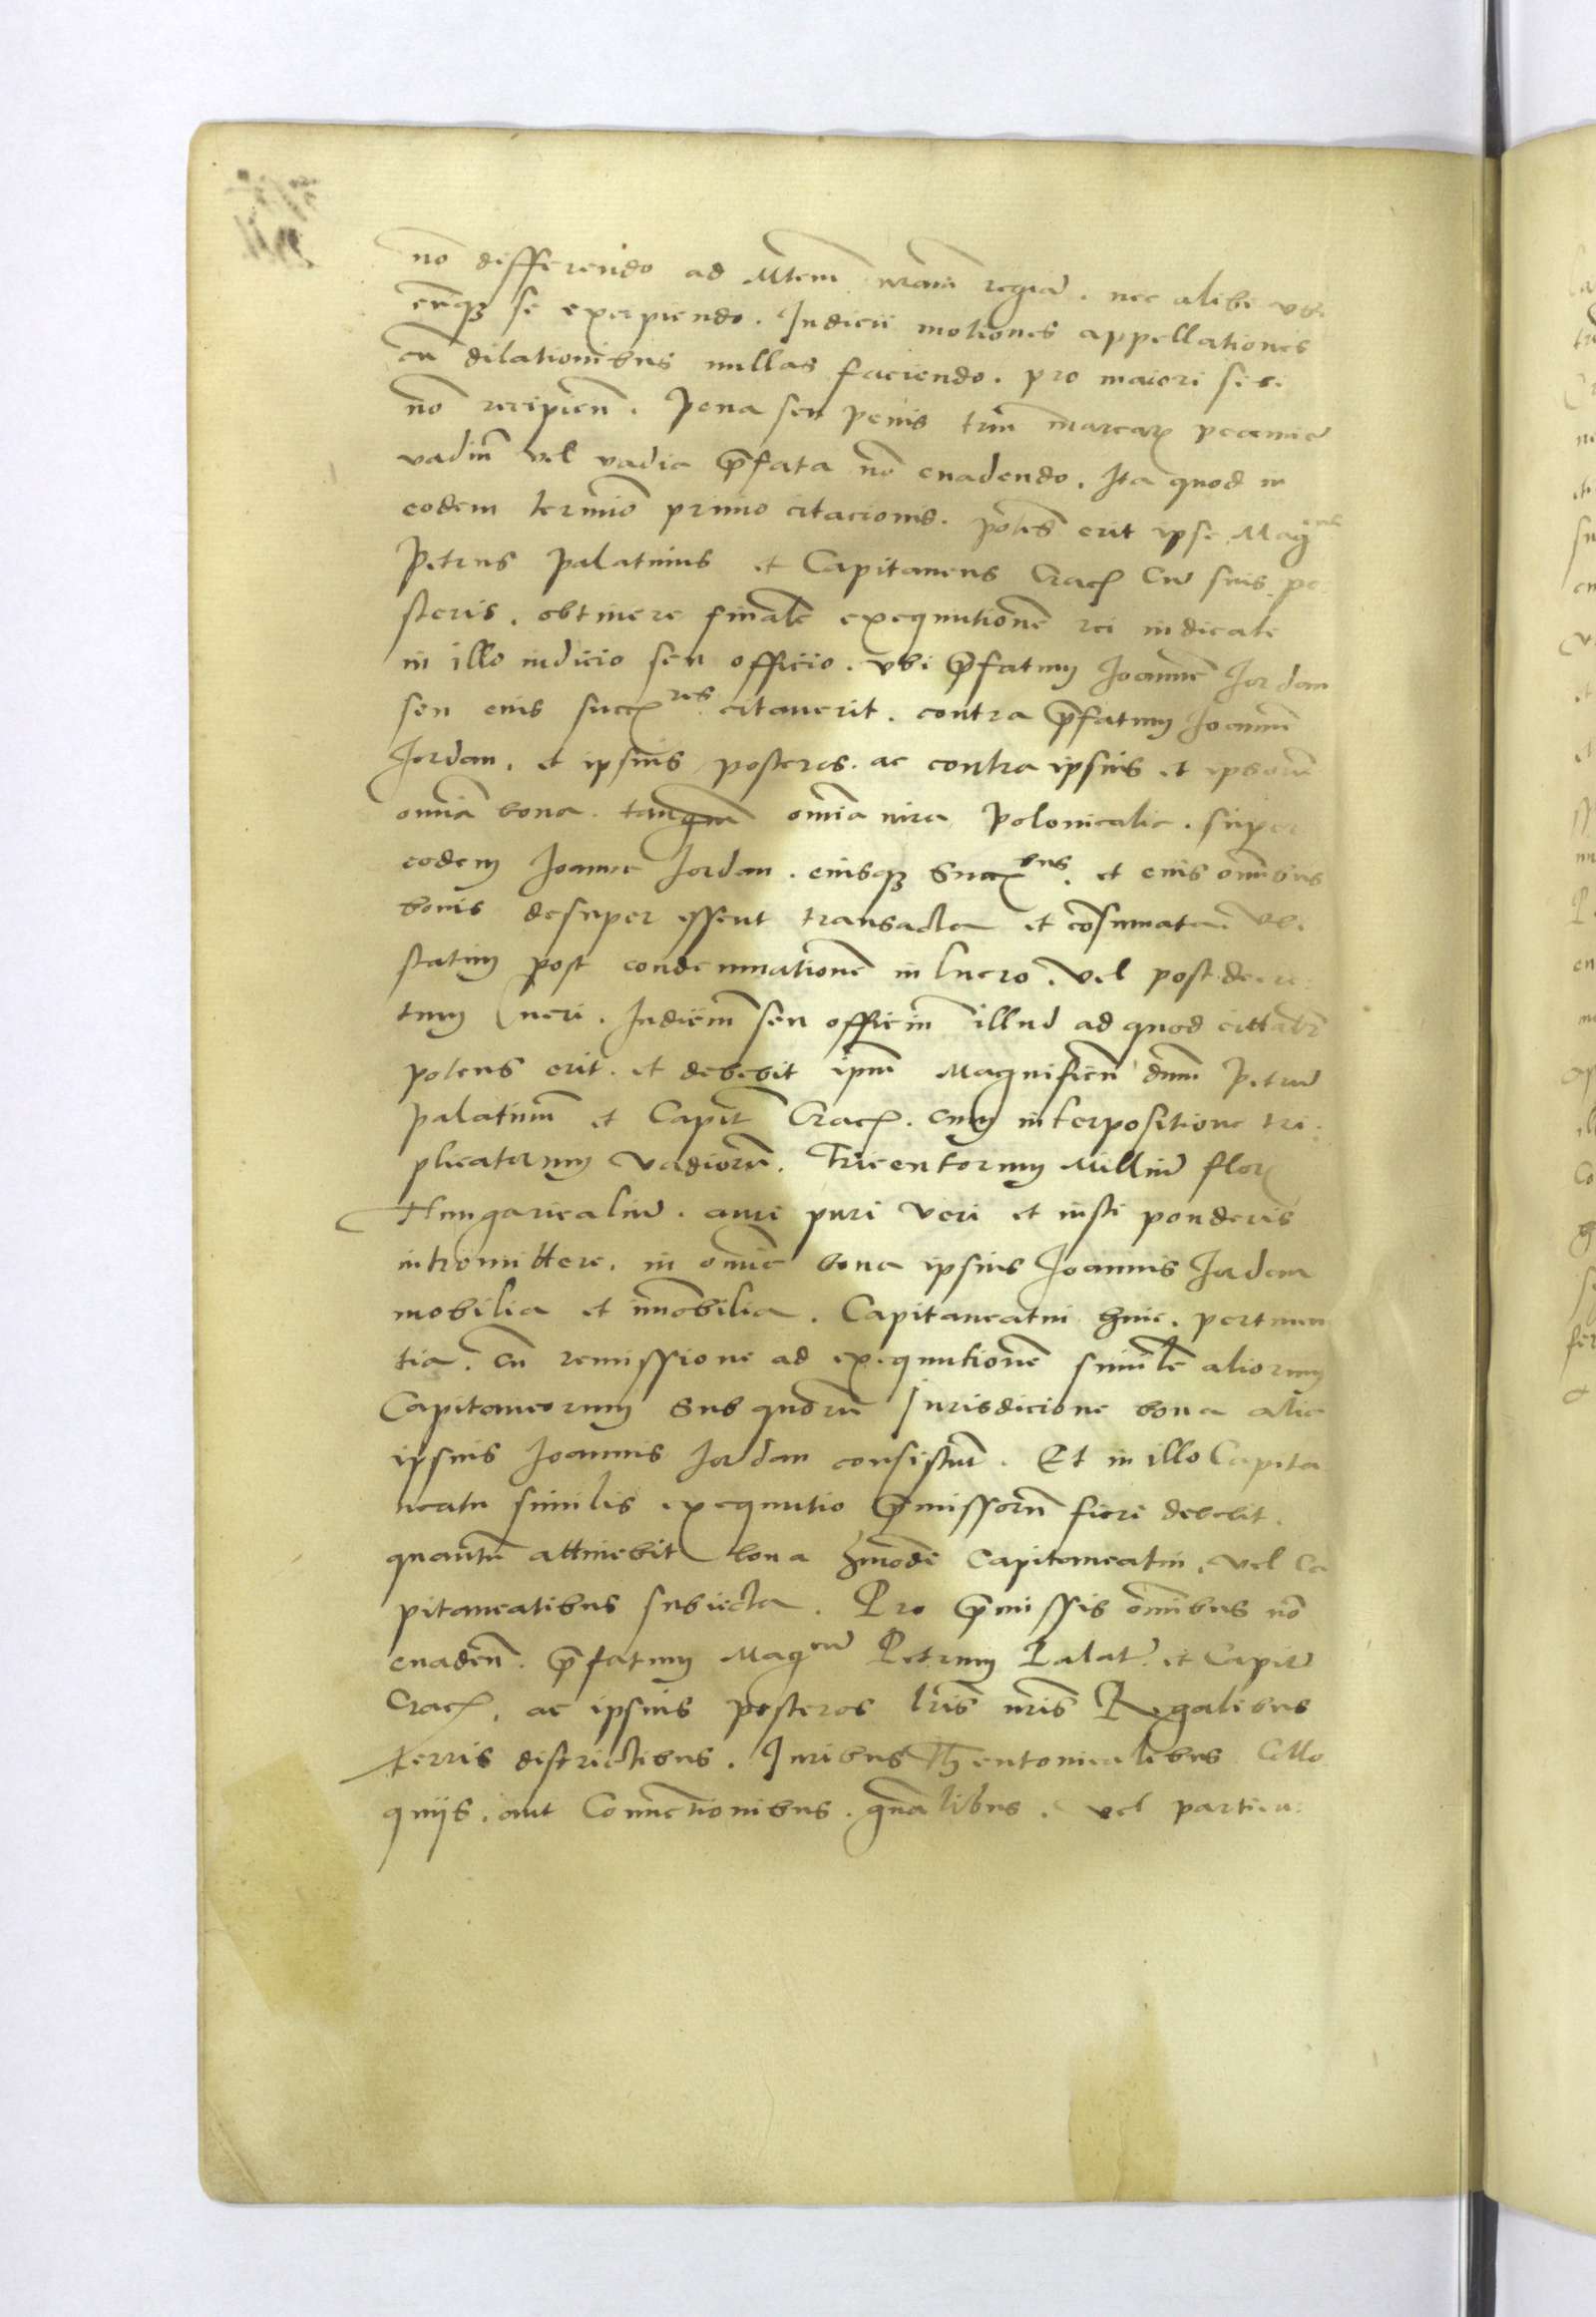 no͞ differendo ad Mtem nr̄am regiā . nec alibi vbi
cūqꝫ se excipiendo . Iudicii motiones appellationes
cū dilationibus nullas faciendo . pro maiori sibi
no͞ recipien̄ . pena seu penis triū marcaꝝ peccunia
vadiū vel vadia p̄fata no͞ euadendo . Ita quod in
eodem termīo primo citacionis . potēs erit ipse Magcus
Petrus palatinus et Capitaneus Crac̄ cū suis po
steris . obtinere finalē exequutionē rei iudicate
in illo iudicio seu officio . vbi p̄fatum Ioannē Iordan
seu eius succres citauerit . contra p̄fatum Ioannē
Iordan . et ipsius posteros . ac contra ipsius et ipsorū
omīa bona . tanquā omīa iura polonicalia . super
eodem Ioanne Iordan . eiusqꝫ Succbus . et eius omībus
bonis desuper essent transacta et cōsumata . Vbi
statim post condemnationē in lucro . vel post decre :
tum lucri . Iudiciū seu officiū illud ad quod cittabr̄
potens erit . et debebit ipm̄ Magnificū dnm̄ Petrū
palatinū et Capitū Crac̄ . cum interpositione tri :
plicatorum vadiorū . Tricentorum Milliū flor̄
Hungaricaliū . auri puri veri et iusti ponderis
intromittere . in omīa bona ipsius Ioannis Iordan
mobilia et imobilia . Capitaneatui huic . pertinen
tia . cū remissione ad exequutionē similē aliorum
Capitaneorum sub quorū Iurisdicione bona alia
ipsius Ioannis Iordan consistūt . Et in illo Capita
neatu similis exequutio p̄missorū fieri debebit .
quantū attinebit bona hmōdi Capitaneatui . vel Ca
pitaneatibus subiecta . Pro p̄missis omībus no͞
euadēn . p̄fatum Magcum Petrum Palatū . et Capitū
Crac̄ . ac ipsius posteros lr̄is nr̄is Regalibus
terris districtibus . Iuribus Theutonicalibus Collo
quiis . aut Conuētionibus . gnālibus . vel particu :